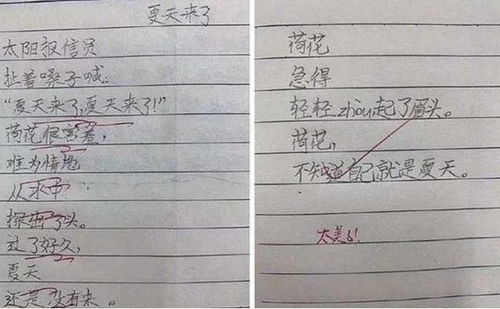 夏天来了
太阳报信员
扯着嗓子喊:
“夏天来了,夏天来了!”
荷花很害羞,
难为情地
从水中
探出了头。
过了好久,
夏天
还是没有来。
荷花
急得
轻轻zhou起了眉头。
荷花,
不知道自己就是夏天。
太美了!